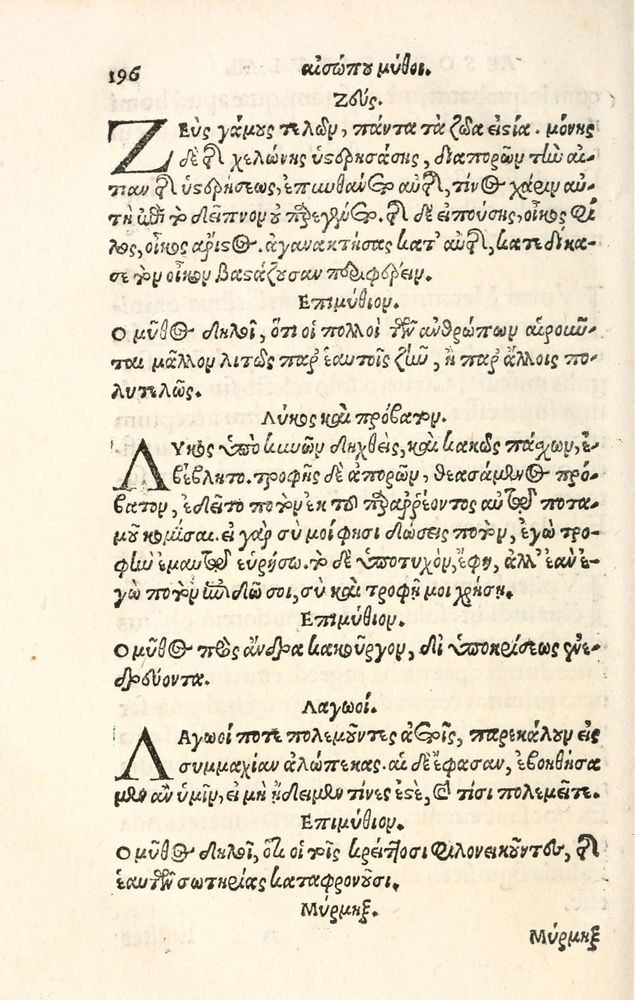 196
αἰσώπου μύθοι.
Ζεύς.
ΖΕὺς γάμους τελῶν, πάντα τὰ ζῶα εἱστία. μόνης
δὲ τῆς χελώνης ὑστερησάσης, διαπορῶν τὴν αἰ-
τίαν τῆς ὑστερήσεως, ἐπυνθάνετο αὐτῆς, τίνος χάριν αὐ-
τὴ ἐπὶ τὸ δεῖπνον οὐ παρεγένετο. τῆς δὲ εἰπούσης, οἶκος φί-
λος, οἶκος ἄριστος. ἀγανακτήσας κατ' αὐτῆς, κατεδίκα-
σε τὸν οἶκον βαστάζουσαν περιφέρειν.
Επιμύθιον.
Ο μῦθος δηλοῖ, ὅτι οἱ πολλοὶ τῶν ἀνθρώπων αἱροῦν-
ται μᾶλλον λιτῶς παρ' ἑαυτοῖς ζῆν, ἢ παρ' ἄλλοις πο-
λυτελῶς.
Λύκος καὶ πρόβατον.
ΛΥκος ὑπὸ κυνῶν δηχθεὶς, καὶ κακῶς πάσχων, ἐ-
βέβλητο. τροφῆς δὲ ἀπορῶν, θεασάμενος πρό-
βατον, ἐδεῖτο ποτὸν ἐκ τοῦ παραρρέοντος αὐτῷ ποτα-
μοῦ κομίσαι. εἰ γὰρ σύ μοί φησι δώσεις ποτὸν, ἐγὼ τρο-
φὴν ἐμαυτῷ εὑρήσω. τὸ δὲ ὑποτυχὸν, ἔφη, ἀλλ' ἐὰν ἐ-
γὼ ποτὸν ἐπιδῶ σοι, σὺ καὶ τροφῇ μοι χρήσῃ.
Επιμύθιον.
Ο μῦθος πρὸς ἄνδρα κακοῦργον, δι' ὑποκρίσεως ἐνε-
δρεύοντα.
Λαγωοί.
ΛΑγωοί ποτε πολεμοῦντες ἀετοῖς, παρεκάλουν εἰς
συμμαχίαν ἀλώπεκας. αἱ δὲ ἔφασαν, ἐβοηθήσα
μεν ἂν ὑμῖν, εἰ μὴ ᾔδειμεν τίνες ἐστὲ, καὶ τίσι πολεμεῖτε.
Επιμύθιον.
Ο μῦθος δηλοῖ, ὅτι οἱ τοῖς κρείττοσι φιλονεικοῦντες, τῆς
ἑαυτῶν σωτηρίας καταφρονοῦσι.
Μύρμηξ.
Μύρμηξ